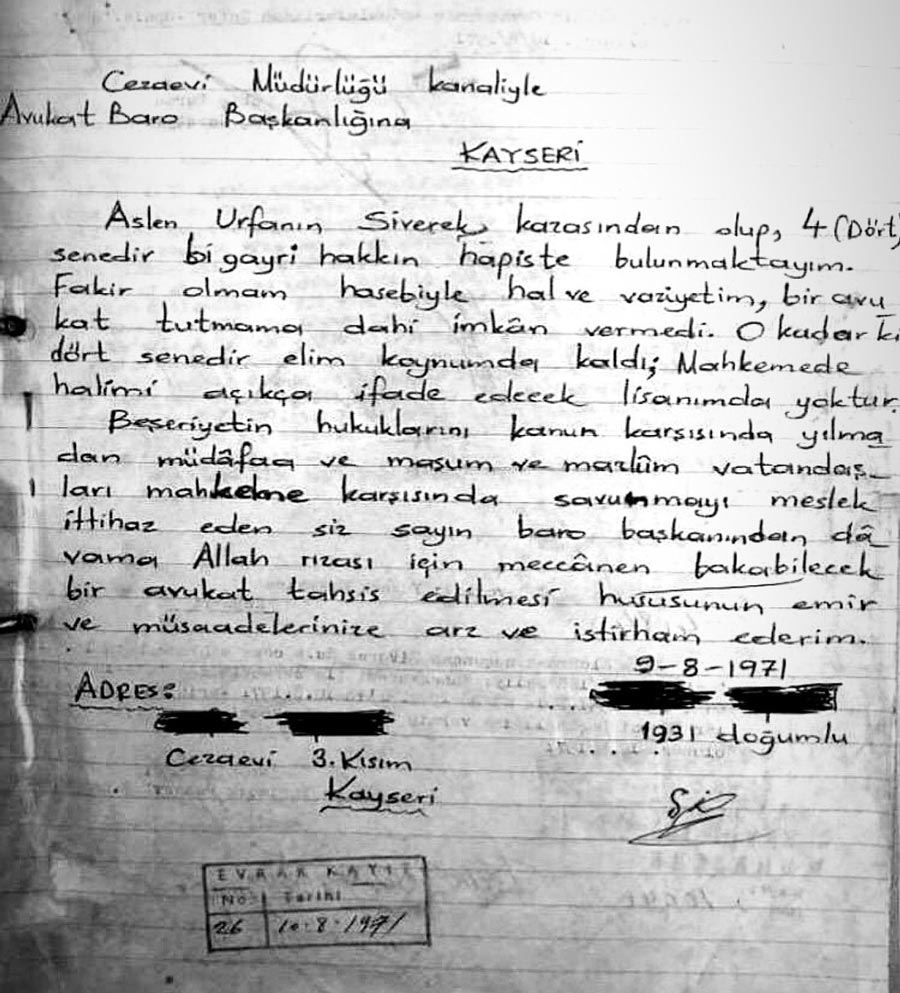 Cezaevi Müdürlüğü kanaliyle
Avukat Baro Başkanlığına
KAYSERİ
Aslen Urfanın Siverek, kazasından olup, 4 (Dört)
senedir bi gayri hakkın hapiste bulunmaktayım.
Fakir olmam hasebiyle hal ve vaziyetim, bir avu
kat tutmama dahi imkân vermedi. O kadar ki
dört senedir elim koynumda kaldı; Mahkemede
halimi açıkça ifade edecek lisanımda yoktur.
Beşeriyetin hukuklarını kanun karşısında yılma
dan müdâfaa ve masum ve mazlûm vatandaş-
ları mahkeme karşısında savunmayı meslek
ittihaz eden siz sayın baro başkanından dâ
vama Allah rızası için meccânen bakabilecek
bir avukat tahsis edilmesi hususunun emir
ve müsaadelerinize arz ve istirham ederim.
9-8-1971
ADRES:
1931 doğumlu
Cezaevi 3. Kısım
Kayseri
EVRAK KAYIT
No Tarihi
26 10.8.1971